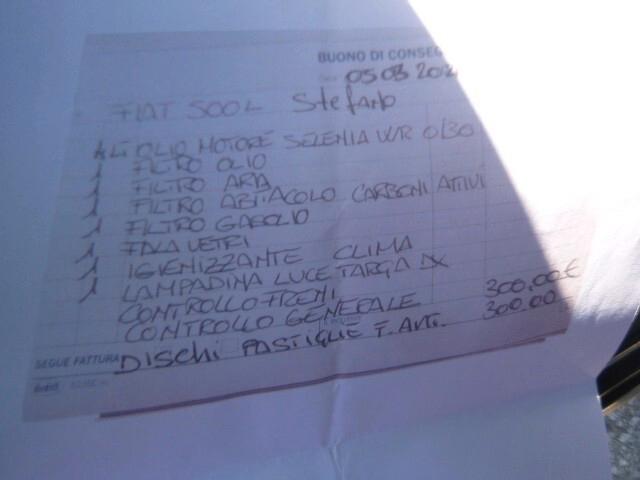 BUONO DI CONSEG
05 03 202
FIAT 500L Stefano
4 LT OLIO MOTORE SELENIA WR 0/30
1 FILTRO OLIO
1 FILTRO ARIA
1 FILTRO ABITACOLO CARBONI ATTIVI
1 FILTRO GASOLIO
1 FALA VETRI
1 IGIENIZZANTE CLIMA
1 LAMPADINA LUCE TARGA DX
CONTROLLO FRENI 300,00€
CONTROLLO GENERALE 300.00
DISCHI PASTIGLIE F. ANT.
SEGUE FATTURA